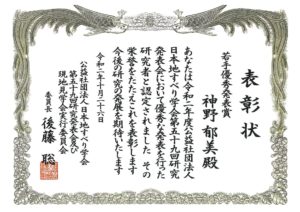 表彰状
若手優秀発表賞
神野 郁美殿
あなたは令和二年度公益社団法人
日本地すべり学会第五十九回研究
発表会において優れた発表を行った
研究者と認定されました その
栄誉をたたえこれを表彰します
今後の研究の発展を期待いたします
令和二年十月二十六日
公益社団法人 日本地すべり学会
第五十九回研究発表会及び
現地見学会実行委員会
委員長 後藤 聡